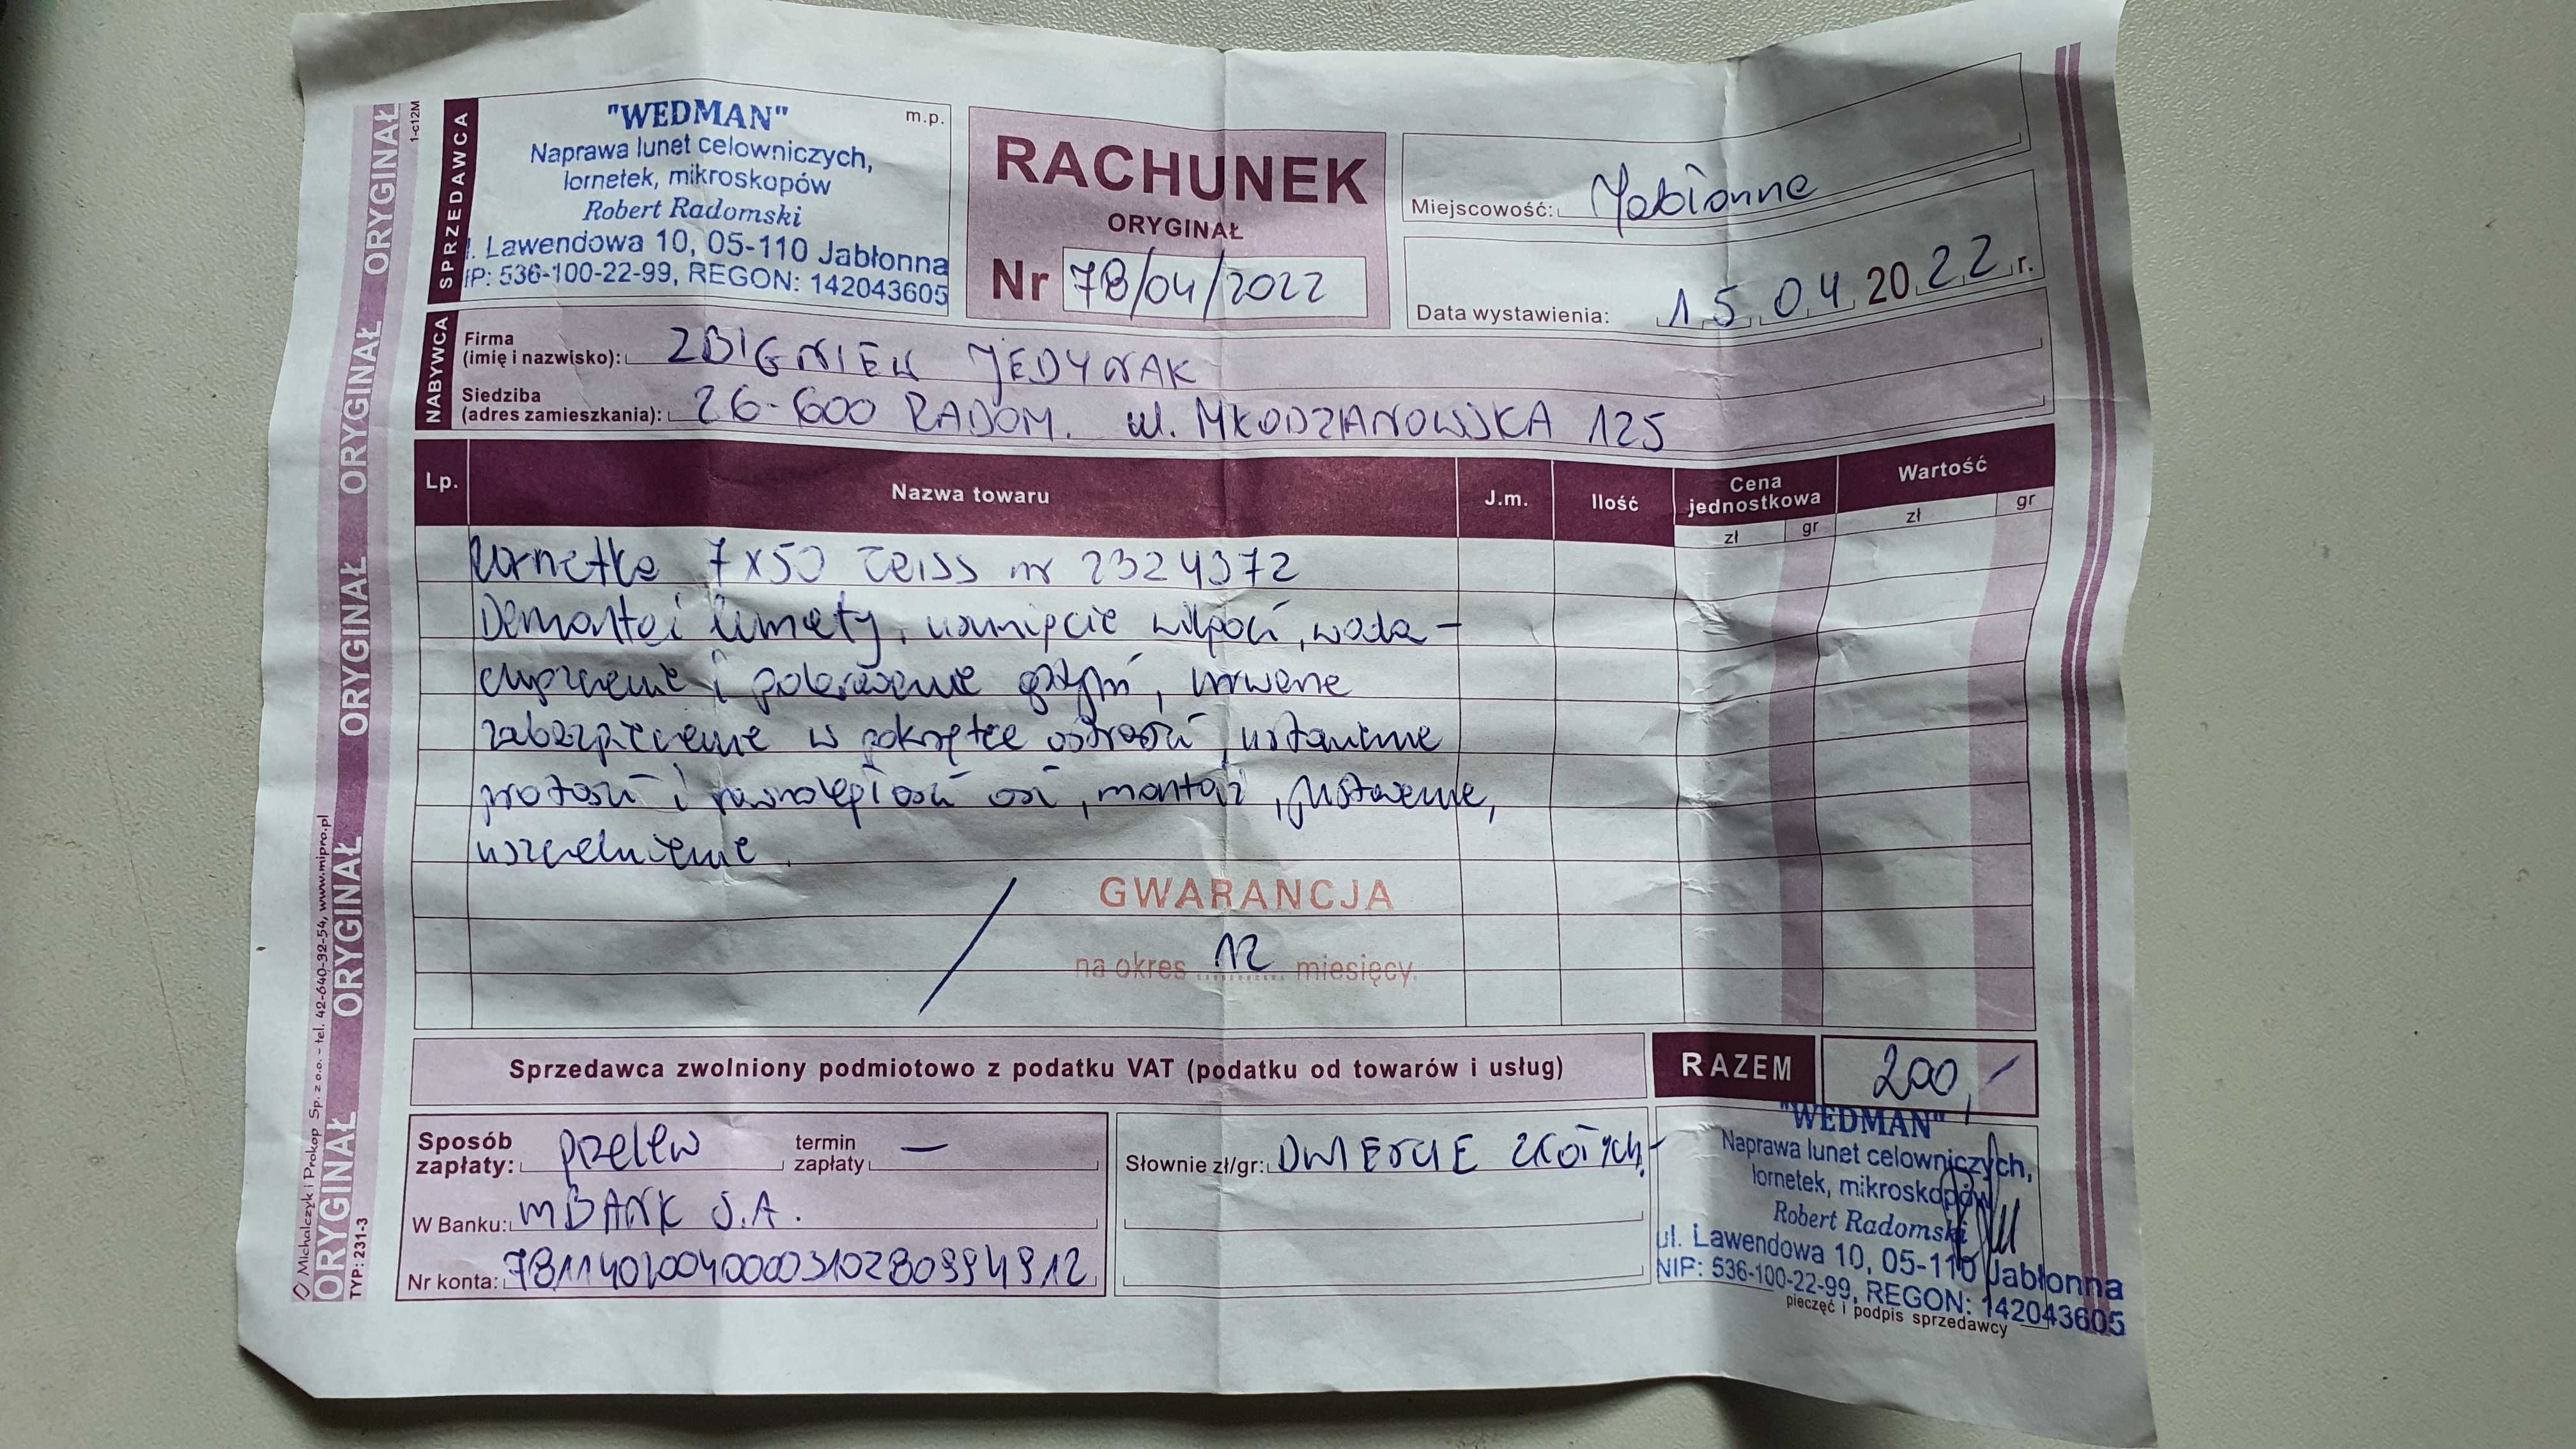 "WEDMAN"
Naprawa lunet celowniczych,
lornetek, mikroskopów
Robert Radomski
l. Lawendowa 10, 05-110 Jabłonna
IP: 536-100-22-99, REGON: 142043605
m.p.
SPRZEDAWCA
RACHUNEK
ORYGINAŁ
Nr 78/04/2022
Miejscowość: Jabłonna
Data wystawienia: 15.04.2022 r.
NABYWCA
Firma
(imię i nazwisko): ZBIGNIEW JEDYNAK
Siedziba
(adres zamieszkania): 26-600 RADOM. ul. MŁODZIANOWSKA 125
Lp. Nazwa towaru J.m. Ilość Cena jednostkowa Wartość
zł gr zł gr
Lornetka 7x50 Zeiss nr 2324372
Demontaż lunety, usunięcie wilgoci,
i , urwane
zabezpieczenie w pokrętce ostrości, ustawienie
prostości i równoległości osi, montaż, justowanie,
uszczelnienie.
GWARANCJA
na okres 12 miesięcy.
Sprzedawca zwolniony podmiotowo z podatku VAT (podatku od towarów i usług)
RAZEM 200,-
Sposób
zapłaty: przelew termin
zapłaty —
W Banku: mBANK S.A.
Nr konta:
Słownie zł/gr: DWIEŚCIE ZŁOTYCH.-
"WEDMAN"
Naprawa lunet celowniczych,
lornetek, mikroskopów
Robert Radomski
ul. Lawendowa 10, 05-110 Jabłonna
NIP: 536-100-22-99, REGON: 142043605
pieczęć i podpis sprzedawcy
ORYGINAŁ ORYGINAŁ ORYGINAŁ ORYGINAŁ ORYGINAŁ
1-c12M
Michalczyk i Prokop Sp. z o.o. - tel. 42-640-32-54, www.mipro.pl
TYP: 231-3